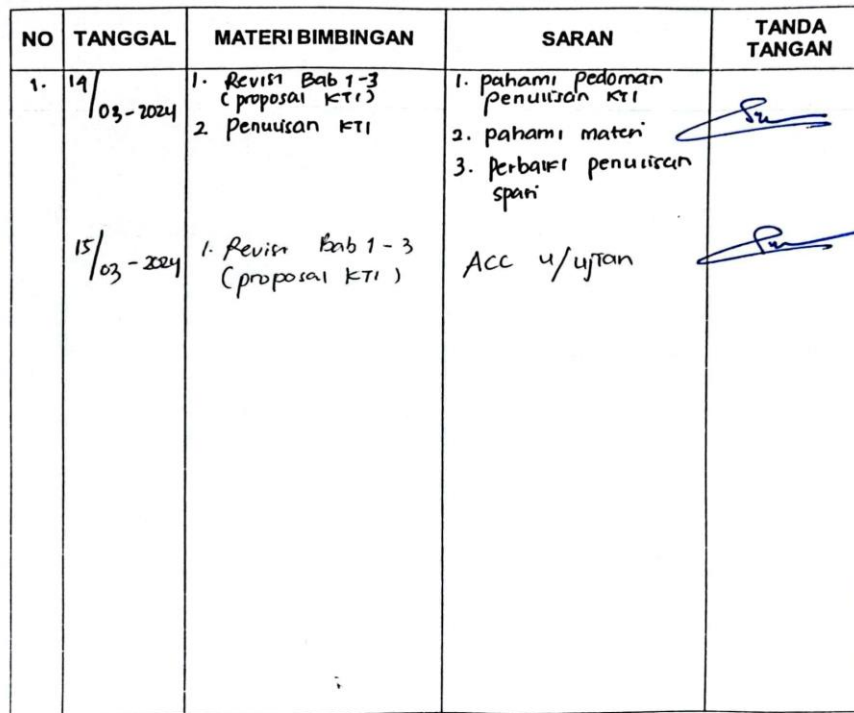 NO TANGGAL MATERI BIMBINGAN SARAN TANDA TANGAN
1. 14/03-2024
1. Revisi Bab 1-3
(proposal KTI)
2 Penulisan KTI
1. pahami pedoman
penulisan KTI
2. pahami materi
3. Perbaiki penulisan
spasi
15/03-2024
1. Revisi Bab 1-3
(proposal KTI)
ACC u/ujian